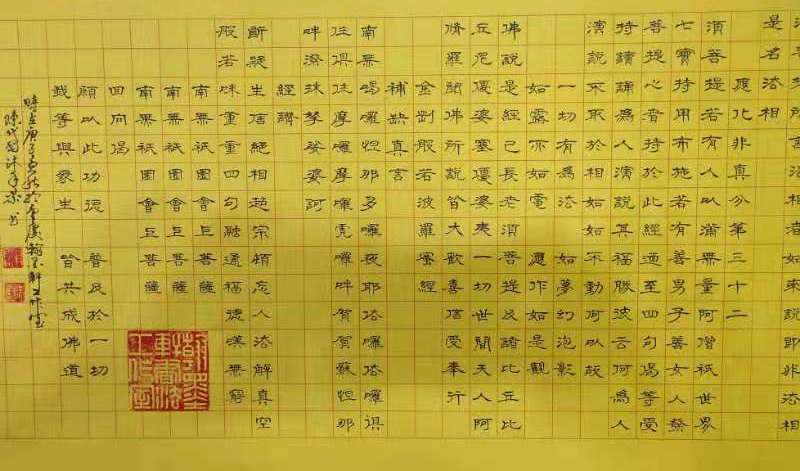 須菩提所言法相者如來說即非法相
是名法相
應化非真分第三十二
須菩提若有人以滿無量阿僧祇世界
七寶持用布施若有善男子善女人發
菩提心者持於此經迺至四句偈等受
持讀誦為人演說其福勝彼云何為人
演說不取於相如如不動何以故
一切有為法 如夢幻泡影
如露亦如電 應作如是觀
佛說是經已長老須菩提及諸比丘比
丘尼優婆塞優婆夷一切世間天人阿
脩羅聞佛所說皆大歡喜信受奉行
金剛般若波羅蜜經
補缺真言
南無喝囉怛那多囉夜耶佉囉佉囉俱
住俱住摩囉摩囉虎囉吽賀賀蘇怛那
吽潑抹拏娑婆訶
經讚
斷疑生信絕相超宗頓忘人法解真空
般若味重重四句融通福德嘆無窮
南無祇園會上菩薩
南無祇園會上菩薩
南無祇園會上菩薩
回向偈
願以此功德 普及於一切
我等與眾生 皆共成佛道
時在庚子孟秋於重慶翰墨軒工作室
沐手敬書
翰墨軒書法工作室